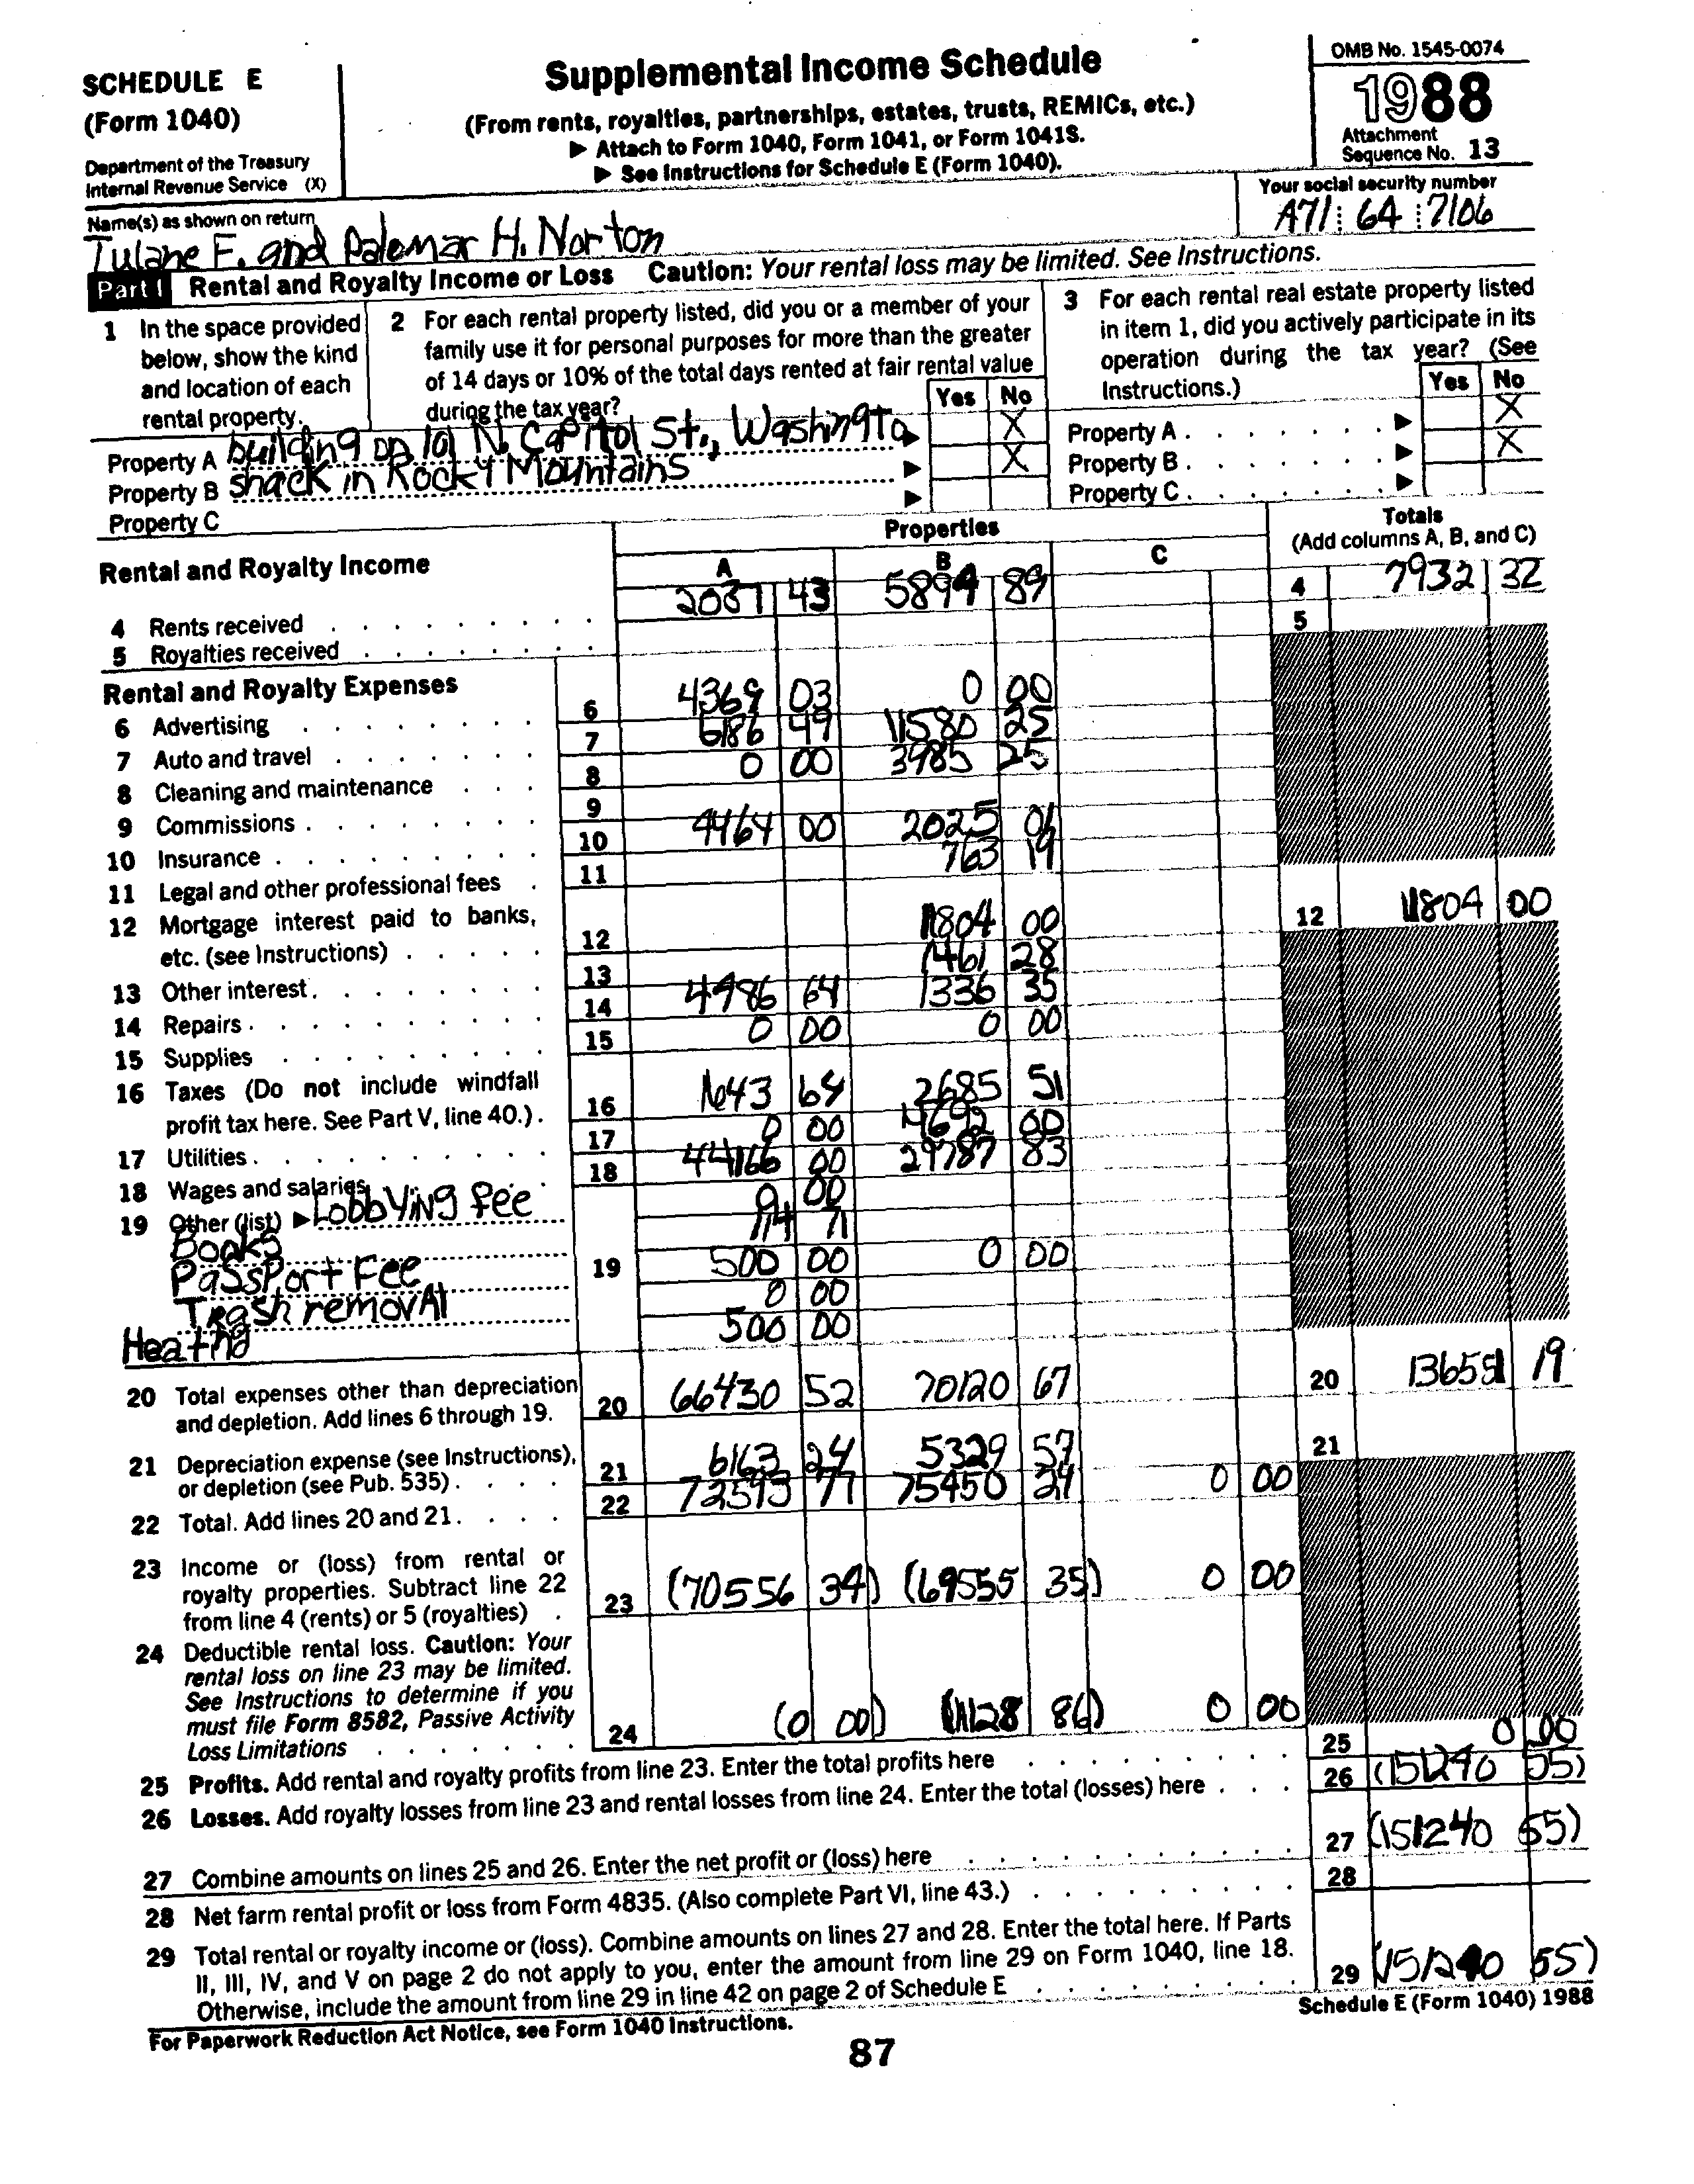 SCHEDULE E
(Form 1040)
Department of the Treasury
Internal Revenue Service (X)
Supplemental Income Schedule
(From rents, royalties, partnerships, estates, trusts, REMICs, etc.)
▶ Attach to Form 1040, Form 1041, or Form 1041S.
▶ See Instructions for Schedule E (Form 1040).
OMB No. 1545-0074
1988
Attachment
Sequence No. 13
Name(s) as shown on return
Tulane F. and Palomar H. Norton
Your social security number
A71 64 7106
Part I Rental and Royalty Income or Loss Caution: Your rental loss may be limited. See Instructions.
1 In the space provided
below, show the kind
and location of each
rental property.
2 For each rental property listed, did you or a member of your
family use it for personal purposes for more than the greater
of 14 days or 10% of the total days rented at fair rental value
during the tax year?
Yes No
3 For each rental real estate property listed
in item 1, did you actively participate in its
operation during the tax year? (See
Instructions.)
Yes No
Property A building on 101 N. Capitol St., Washingto X Property A X
Property B shack in Rocky Mountains X Property B X
Property C Property C
Rental and Royalty Income
Properties
A B C
Totals
(Add columns A, B, and C)
4 Rents received 2037 43 5894 89 4 7932 32
5 Royalties received 5
Rental and Royalty Expenses
6 Advertising 6 4369 03 0 00
7 Auto and travel 7 6186 49 11580 25
8 Cleaning and maintenance 8 0 00 3985 25
9 Commissions 9
10 Insurance 10 4464 00 2025 06
11 Legal and other professional fees 11 763 19
12 Mortgage interest paid to banks,
etc. (see Instructions) 12 11804 00 12 11804 00
13 Other interest 13 1461 28
14 Repairs 14 4986 64 1336 35
15 Supplies 15 0 00 0 00
16 Taxes (Do not include windfall
profit tax here. See Part V, line 40.) 16 1643 64 2685 51
17 Utilities 17 0 00 4692 00
18 Wages and salaries 18 44166 00 29787 83
19 Other (list) ▶ Lobbying fee 0 00
Books 114 71
Passport Fee 19 500 00 0 00
Trash removAl 0 00
Heating 500 00
20 Total expenses other than depreciation
and depletion. Add lines 6 through 19. 20 66430 52 70120 67 20 136551 19
21 Depreciation expense (see Instructions),
or depletion (see Pub. 535) 21 6163 24 5329 57 21
22 Total. Add lines 20 and 21 22 72593 77 75450 24 0 00
23 Income or (loss) from rental or
royalty properties. Subtract line 22
from line 4 (rents) or 5 (royalties) 23 (70556 34) (69555 35) 0 00
24 Deductible rental loss. Caution: Your
rental loss on line 23 may be limited.
See Instructions to determine if you
must file Form 8582, Passive Activity
Loss Limitations 24 (0 00) (11128 86) 0 00
25 Profits. Add rental and royalty profits from line 23. Enter the total profits here 25 0 00
26 Losses. Add royalty losses from line 23 and rental losses from line 24. Enter the total (losses) here 26 (151240 55)
27 Combine amounts on lines 25 and 26. Enter the net profit or (loss) here 27 (151240 55)
28 Net farm rental profit or loss from Form 4835. (Also complete Part VI, line 43.) 28
29 Total rental or royalty income or (loss). Combine amounts on lines 27 and 28. Enter the total here. If Parts
II, III, IV, and V on page 2 do not apply to you, enter the amount from line 29 on Form 1040, line 18.
Otherwise, include the amount from line 29 in line 42 on page 2 of Schedule E 29 (151240 55)
For Paperwork Reduction Act Notice, see Form 1040 Instructions.
Schedule E (Form 1040) 1988
87